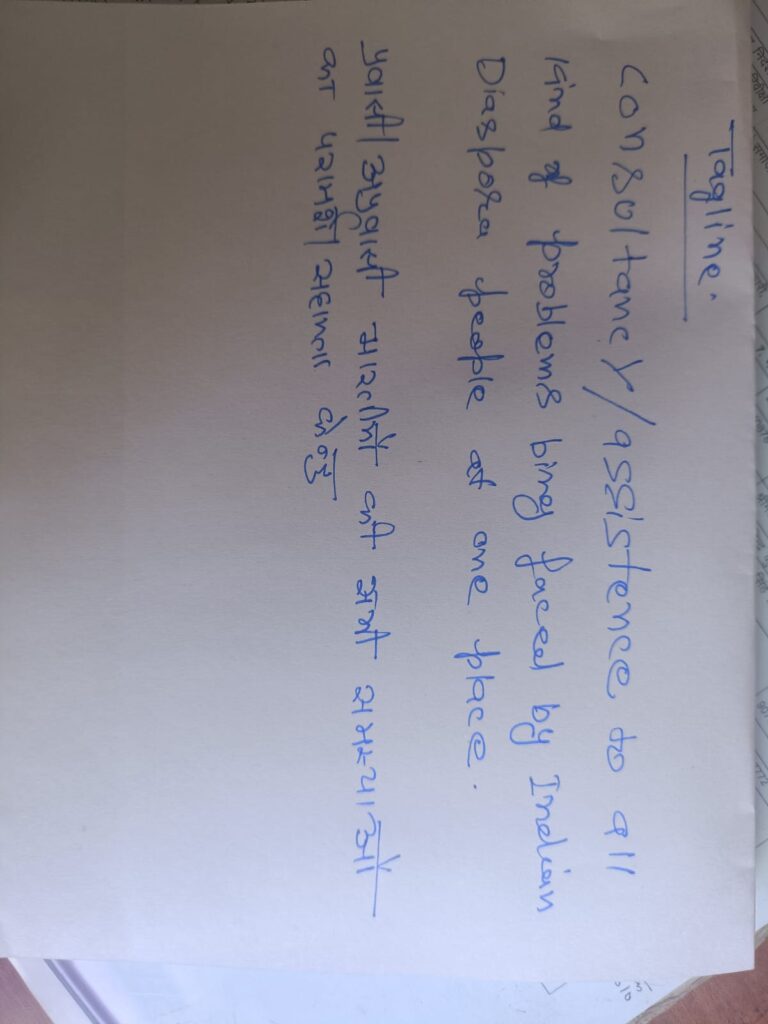 Tagline.
Consultancy/assistence to all
kind of problems bing faced by Indian
Diaspora people at one place.
प्रवासी/अप्रवासी भारतीयों की सभी समस्याओं
का परामर्श/सहायता केन्द्र